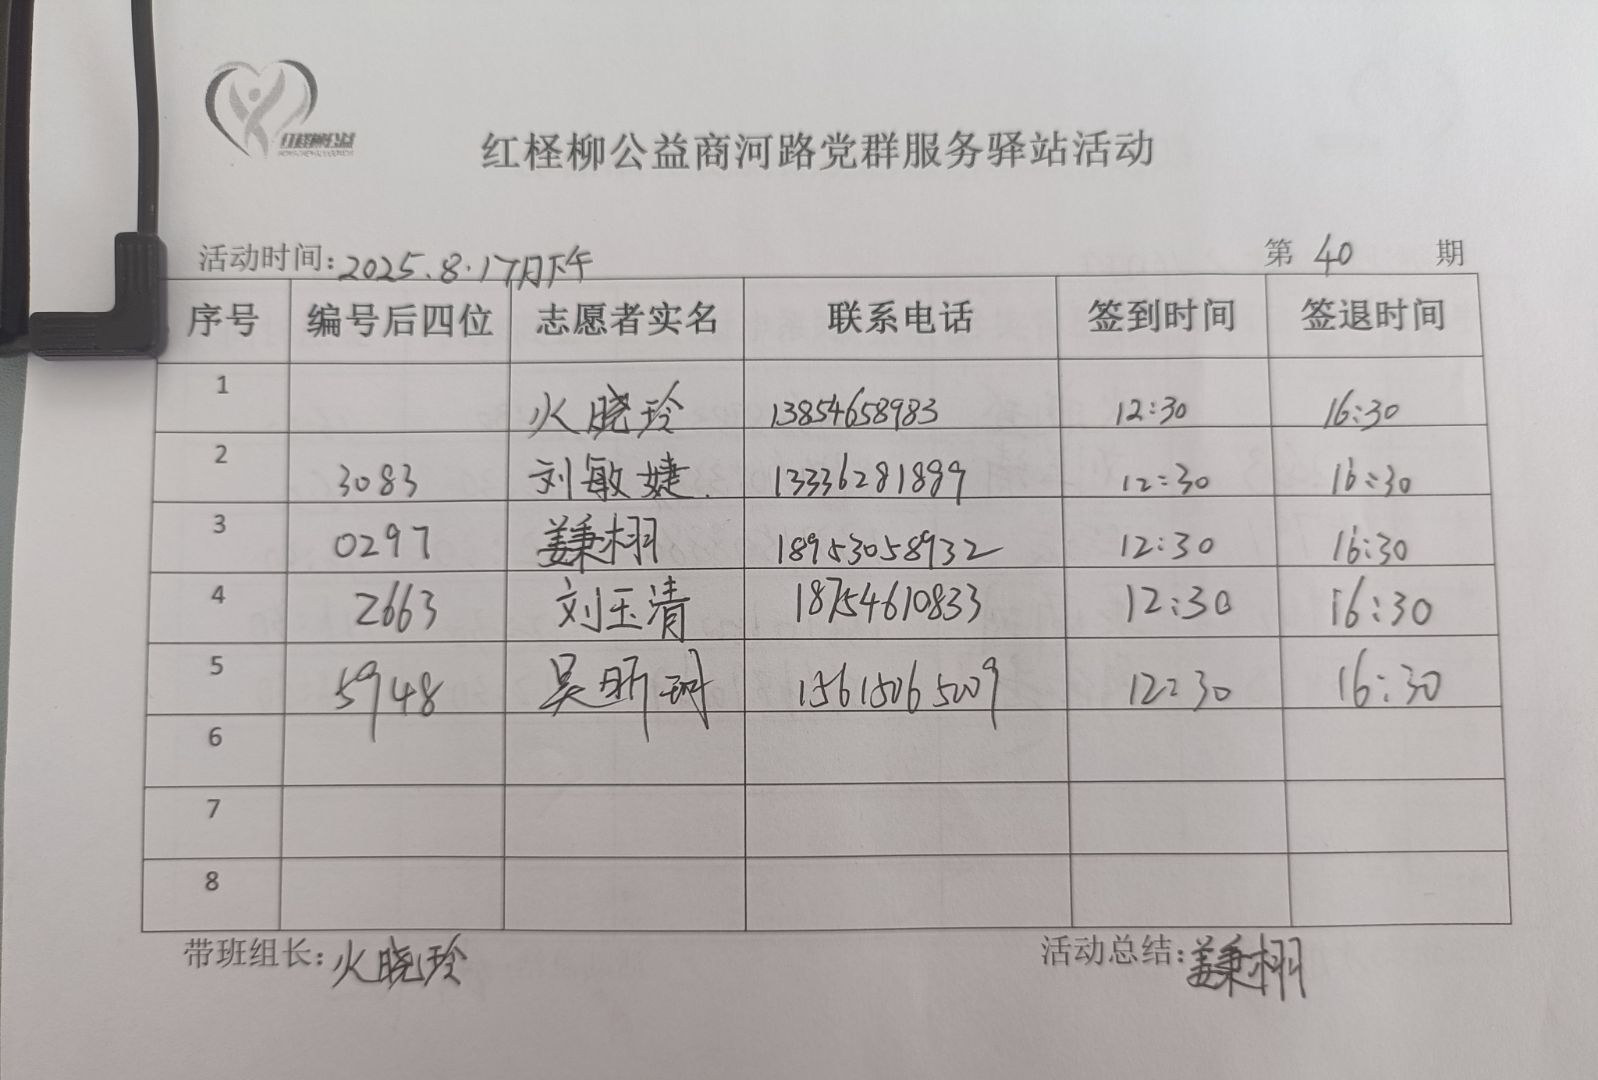 红柽柳公益
红柽柳公益商河路党群服务驿站活动
活动时间:2025.8.17日下午 第 40 期
序号 编号后四位 志愿者实名 联系电话 签到时间 签退时间
1 火晓玲 13854658983 12:30 16:30
2 3083 刘敏婕 13336281899 12:30 16:30
3 0297 姜秉栩 18953058932 12:30 16:30
4 2663 刘玉清 18754610833 12:30 16:30
5 5948 吴昕珂 15615065009 12:30 16:30
6
7
8
带班组长:火晓玲 活动总结:姜秉栩